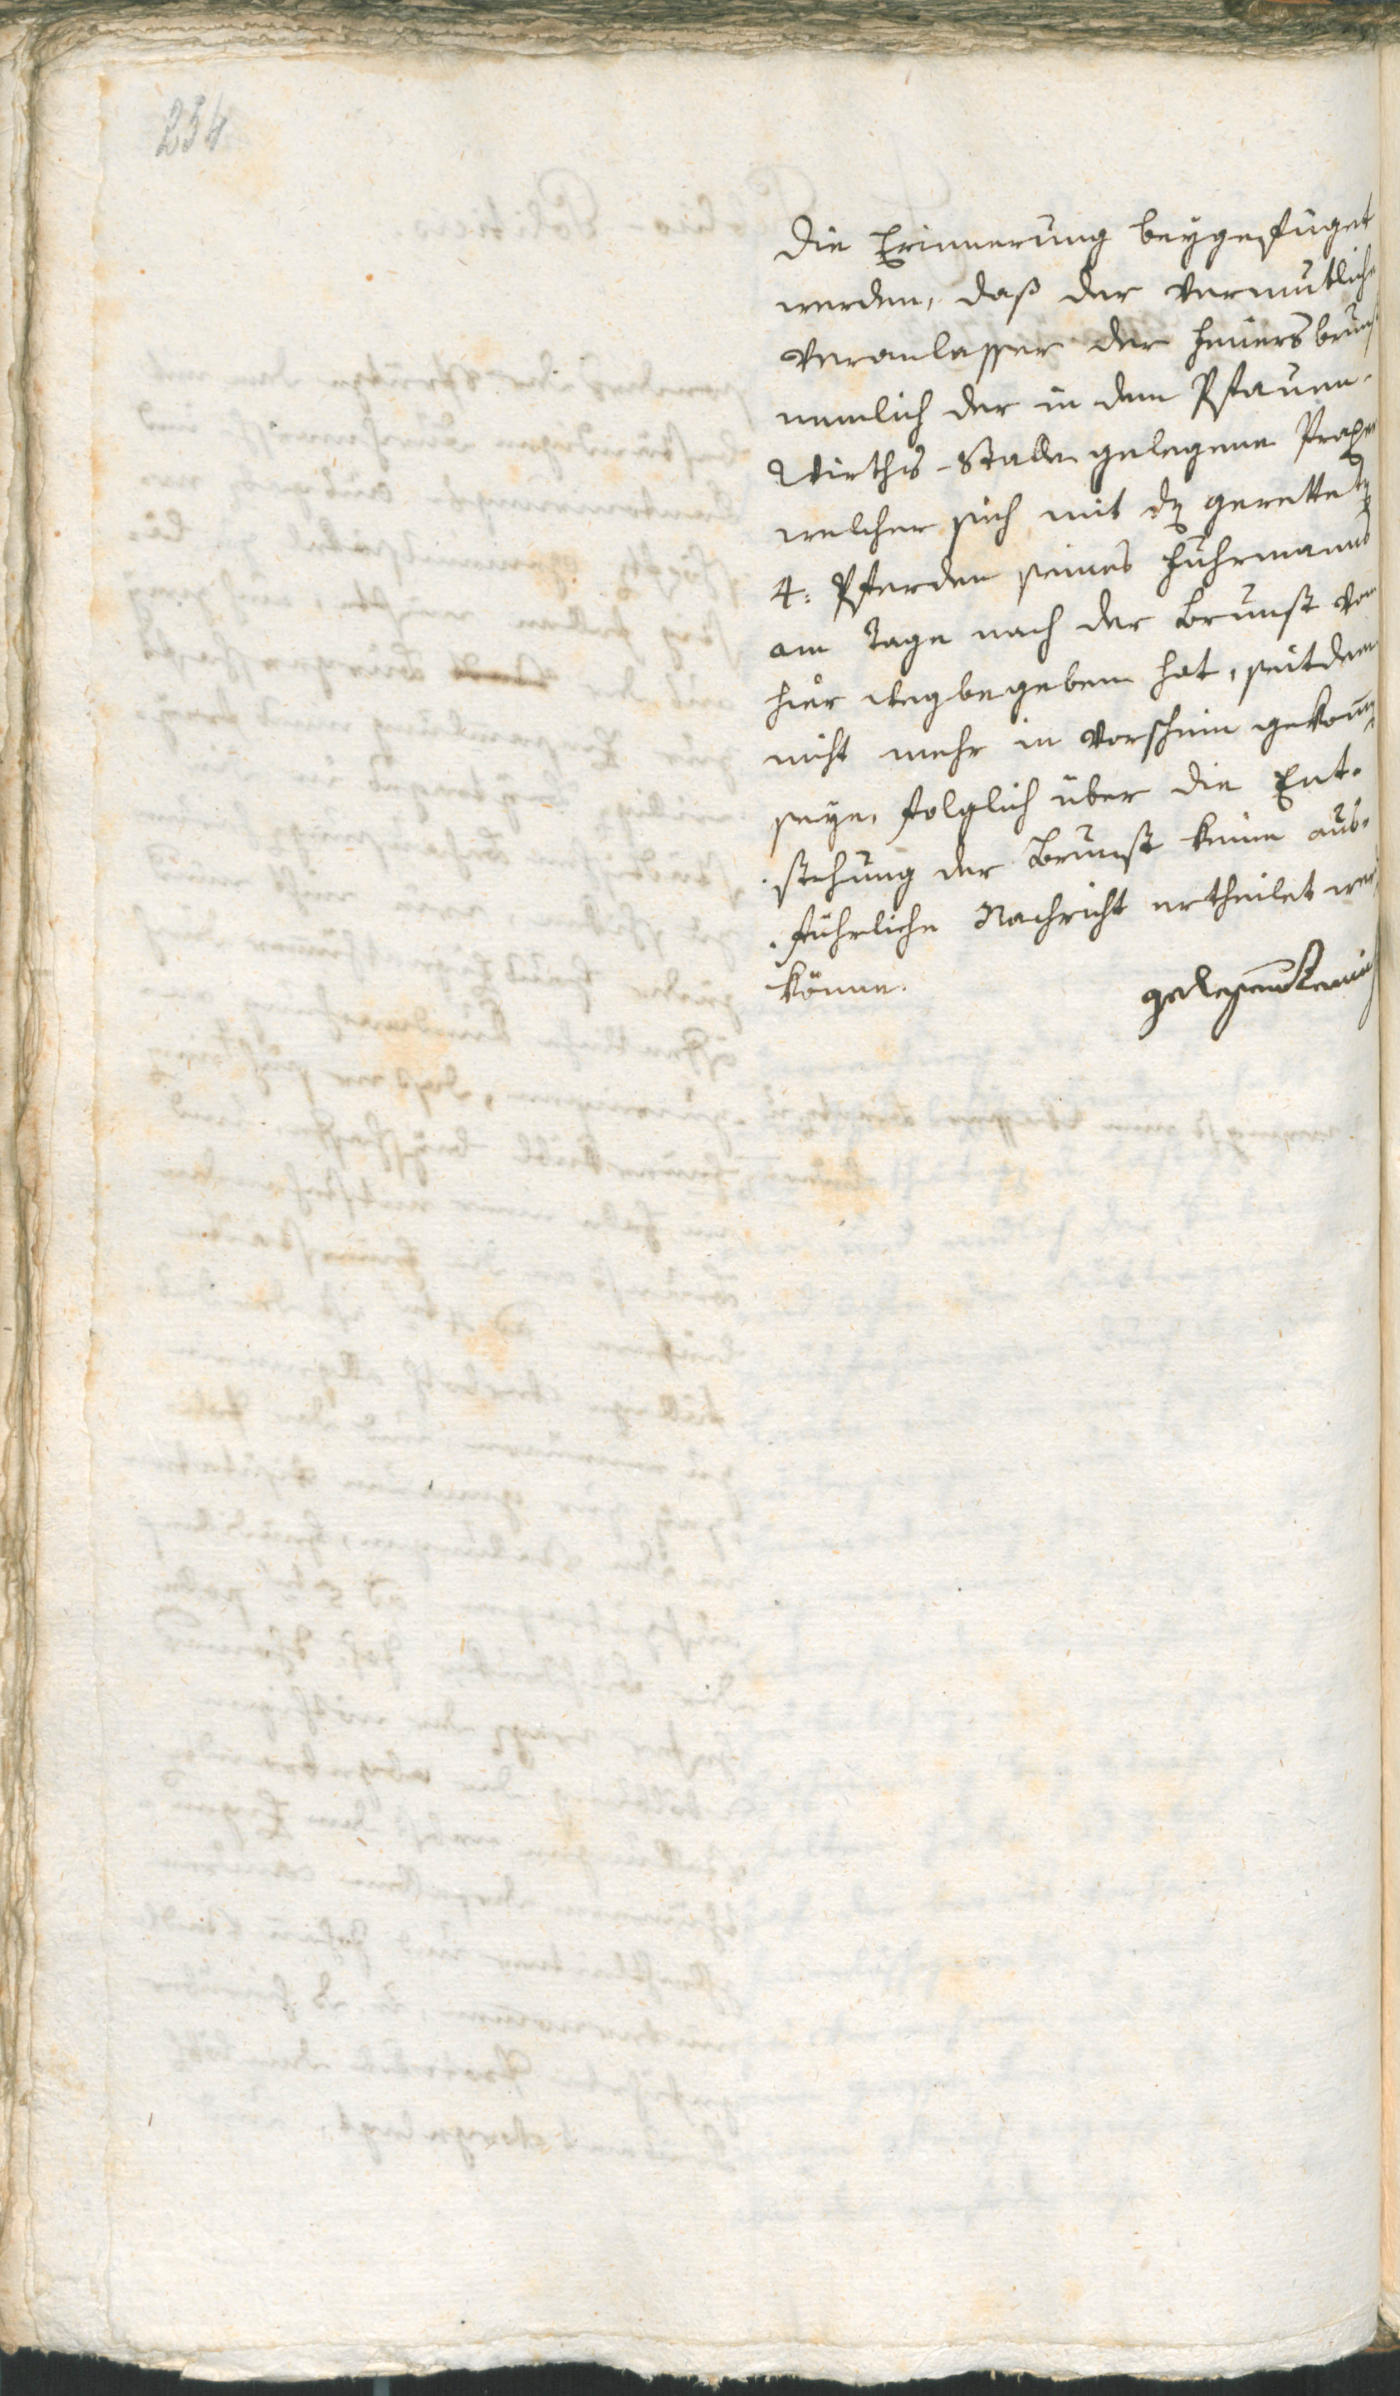 254
die Erinnerung beygefüget
werden, daß der vermutliche
Veranlasser der Feuersbrunst
nemlich der in dem Pfauen-
Wirths-Stalle gelegene
welcher sich mit dẽ gerettetẽ
4: Pferden seines Fuhrmanns
am Tage nach der Brunst von
hier wegbegeben hat, seitdem
nicht mehr in Vorschein gekom̃
seye, folglich über die Ent-
stehung der Brunst keine aus-
führliche Nachricht ertheilet wer
könne.